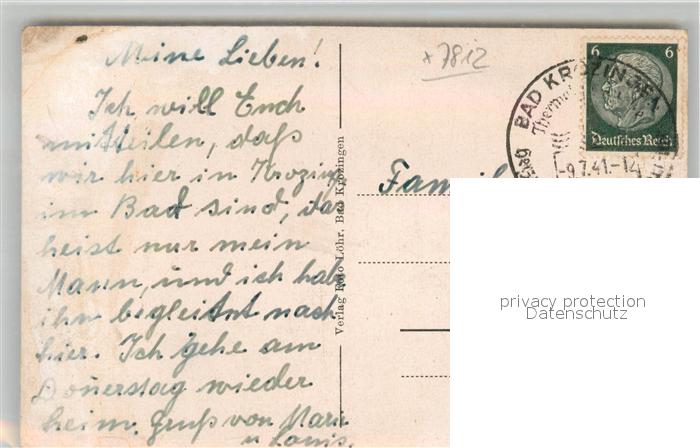 Meine Lieben!
Ich will Euch
mitteilen, daß
wir hier in Krozing
im Bad sind, das
heist nur mein
Mann, und ich hab
ihn begleitet nach
hier. Ich gehe am
Donerstag wieder
heim. Gruß von Marie
u Louis.
Verlag Foto Löhr, Bad Krozingen
x7812
6 6
Deutsches Reich
BAD KROZINGEN
Thermal
-9.7.41.-14
Famil
privacy protection
Datenschutz